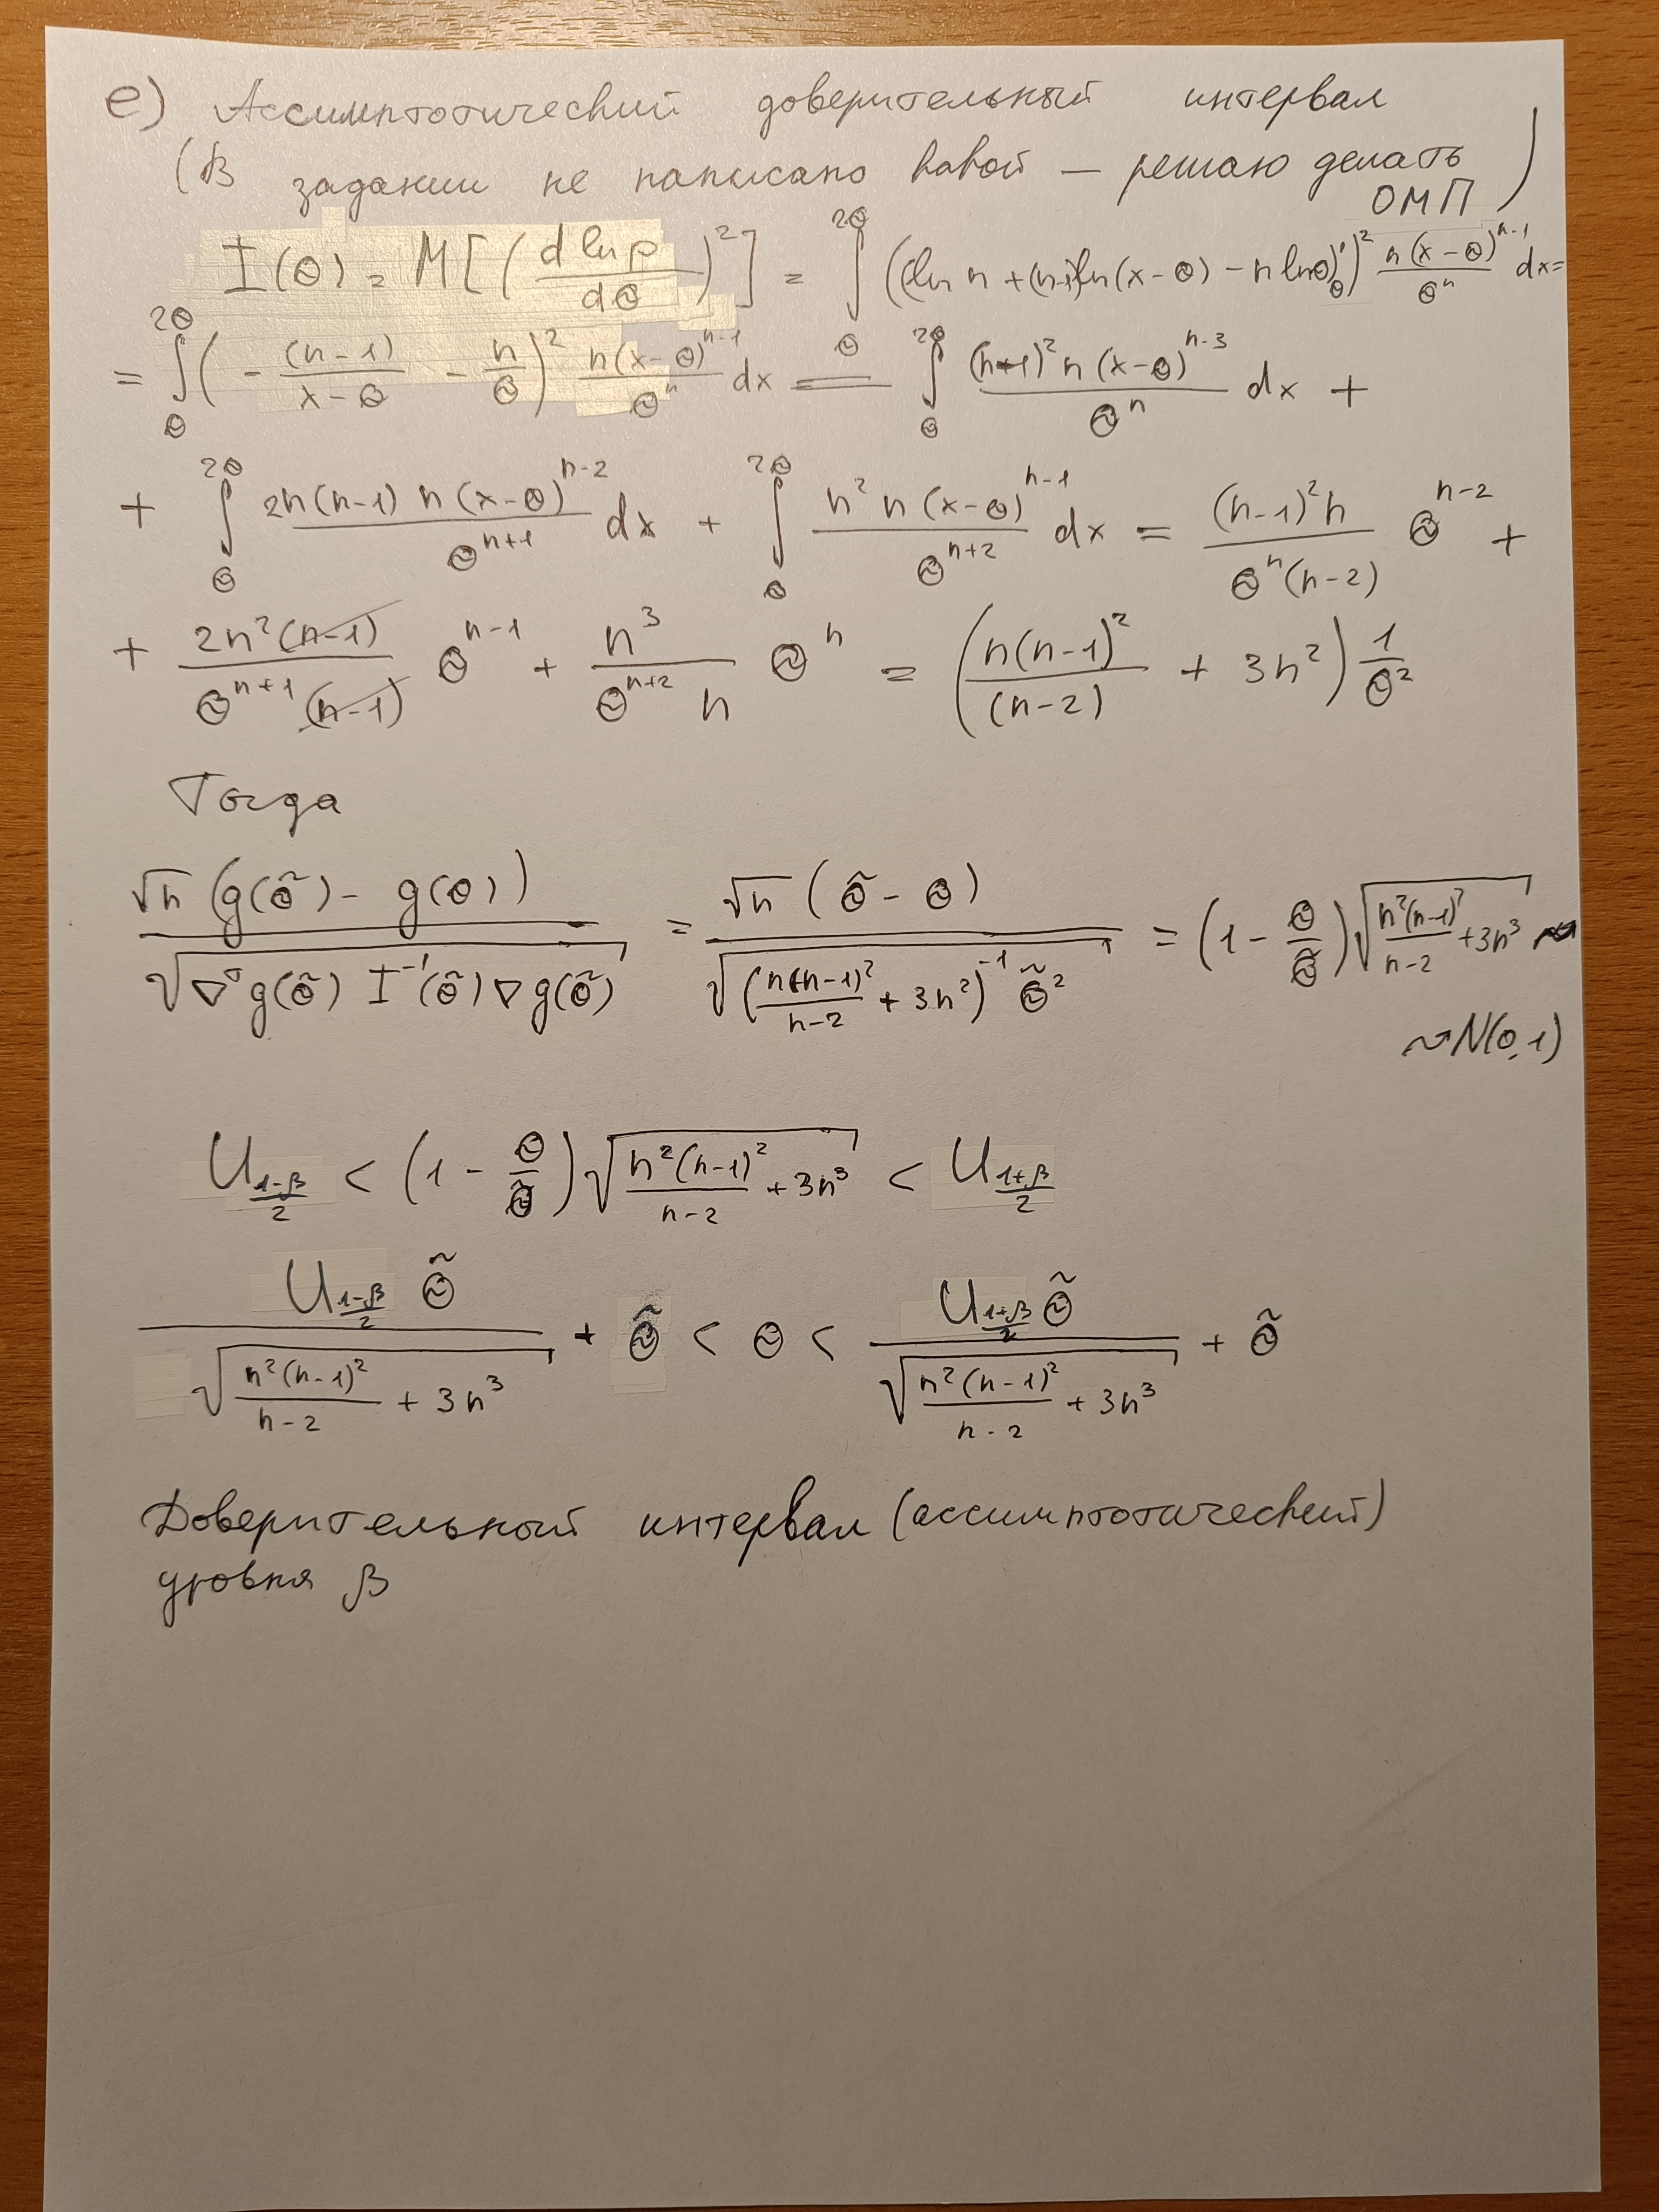 e) Ассимптотический доверительный интервал
(В задании не написано какой — решаю делать ОМП)
I(θ) = M[(d ln p / dθ)²] = ∫_θ^{2θ} ((ln n + (n-1)ln(x-θ) - n lnθ)'_θ)² n(x-θ)^{n-1}/θⁿ dx =
= ∫_θ^{2θ} (- (n-1)/(x-θ) - n/θ)² n(x-θ)^{n-1}/θⁿ dx = ∫_θ^{2θ} (n-1)² n (x-θ)^{n-3}/θⁿ dx +
+ ∫_θ^{2θ} 2n(n-1) n (x-θ)^{n-2}/θ^{n+1} dx + ∫_θ^{2θ} n² n (x-θ)^{n-1}/θ^{n+2} dx = (n-1)² n/(θⁿ(n-2)) θ^{n-2} +
+ 2n²(n-1)/(θ^{n+1}(n-1)) θ^{n-1} + n³/(θ^{n+2} n) θⁿ = (n(n-1)²/(n-2) + 3n²) 1/θ²
Тогда
√n (g(θ̃) - g(θ))/√(∇ᵀg(θ̃) I⁻¹(θ̃) ∇g(θ̃)) = √n (θ̃ - θ)/√((n(n-1)²/(n-2) + 3n²)⁻¹ θ̃²) = (1 - θ/θ̃)√(n²(n-1)²/(n-2) + 3n³) ⇝
⇝ N(0,1)
U_{(1-β)/2} < (1 - θ/θ̃)√(n²(n-1)²/(n-2) + 3n³) < U_{(1+β)/2}
U_{(1-β)/2} θ̃/√(n²(n-1)²/(n-2) + 3n³) + θ̃ < θ < U_{(1+β)/2} θ̃/√(n²(n-1)²/(n-2) + 3n³) + θ̃
Доверительный интервал (ассимптотический)
уровня β